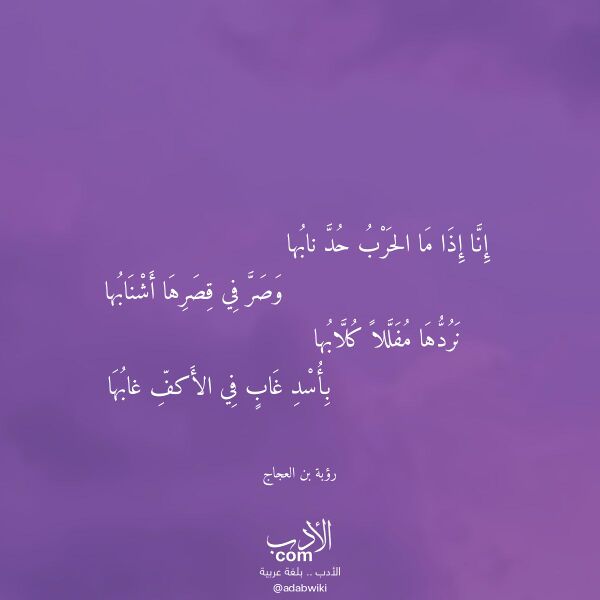 إِنَّا إِذَا مَا الحَرْبُ حُدَّ نابُها
وَصَرَّ فِي قِصَرِهَا أَشْنَابُها
نَرُدُّهَا مُفَلَّلاً كُلَّابُها
بِأُسْدِ غَابٍ فِي الأَكفِّ غابُهَا
رؤبة بن العجاج
الأدب
com
الأدب .. بلغة عربية
@adabwiki